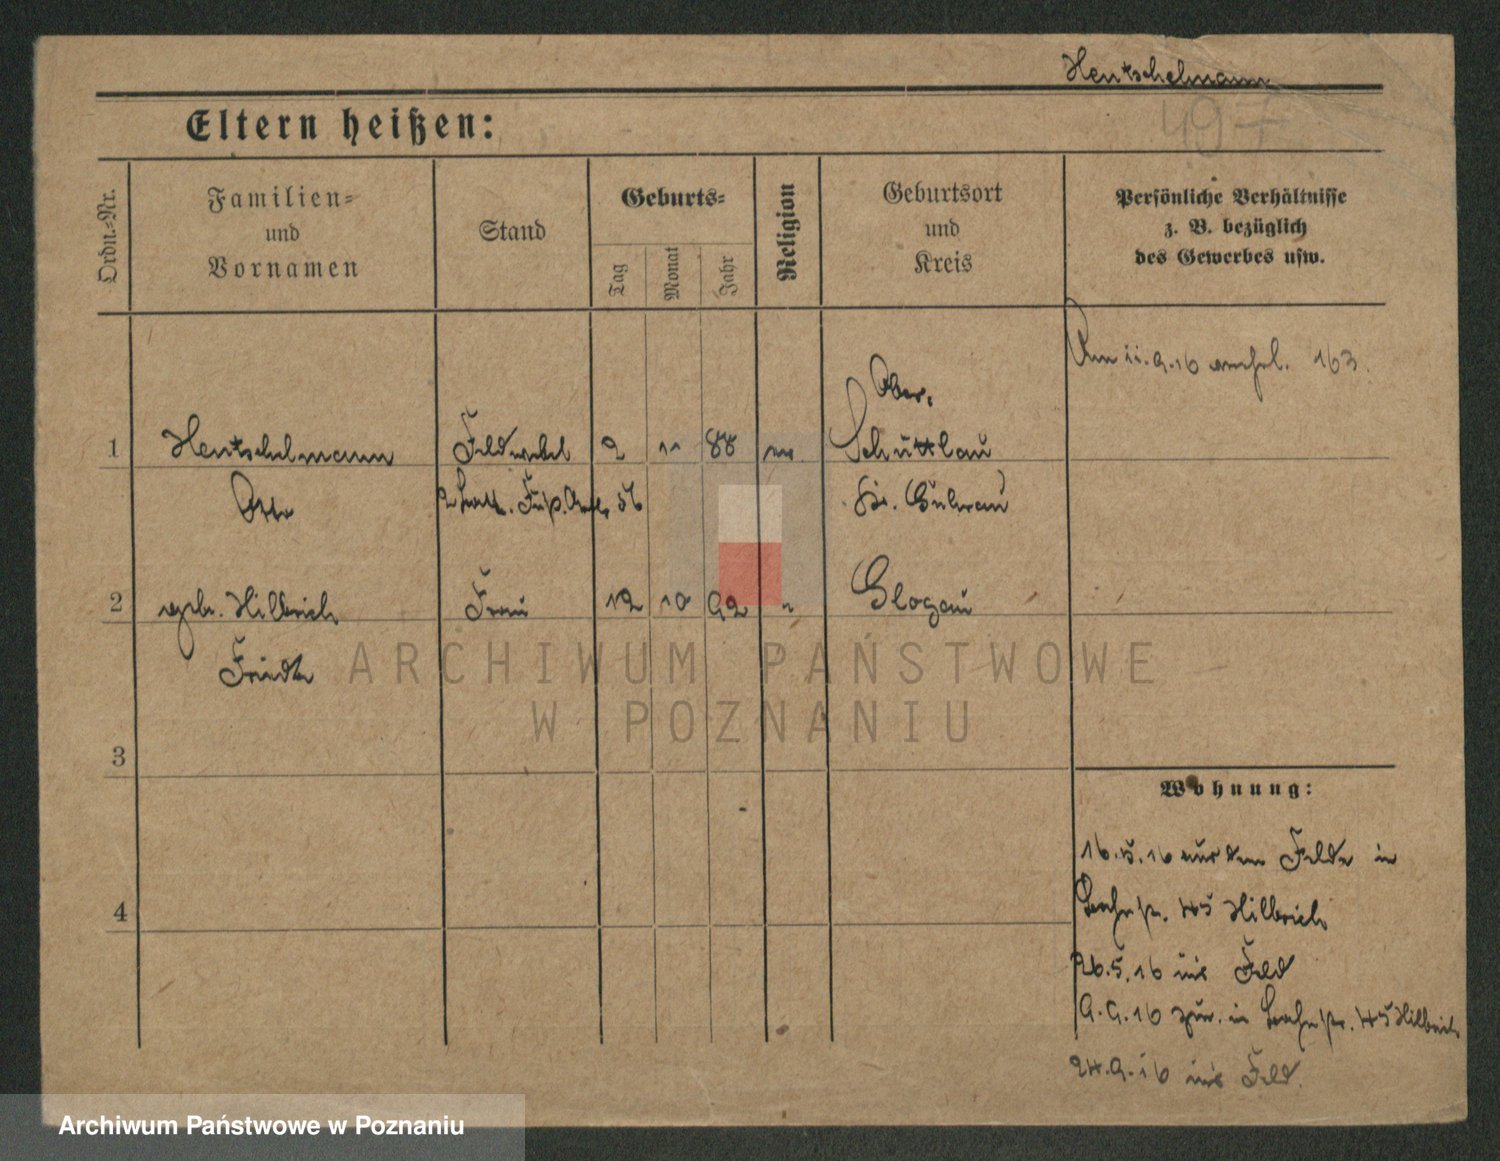 Hentschelmann
497
Eltern heißen:
Ordn.-Nr.
Familien-
und
Vornamen
Stand
Geburts-
Tag
Monat
Jahr
Religion
Geburtsort
und
Kreis
Persönliche Verhältnisse
z. B. bezüglich
des Gewerbes usw.
Am 11.9.16 verehel. 163.
Ober,
1 Hentschelmann Feldwebel 2 11 88 ev Schüttlau
Otto 2 Batt. Fuß. Artl. 56 Kr. Guhrau
2 geb. Hilbrich Frau 12 10 92 " Glogau
Friede
ARCHIWUM PAŃSTWOWE
W POZNANIU
3
Wohnung:
16.5.16 aus dem Felde in
4
45 Hilbrich
26.5.16 ins Feld
9.9.16 zur. in 45 Hilbrich
24.9.16 ins Feld.
Archiwum Państwowe w Poznaniu